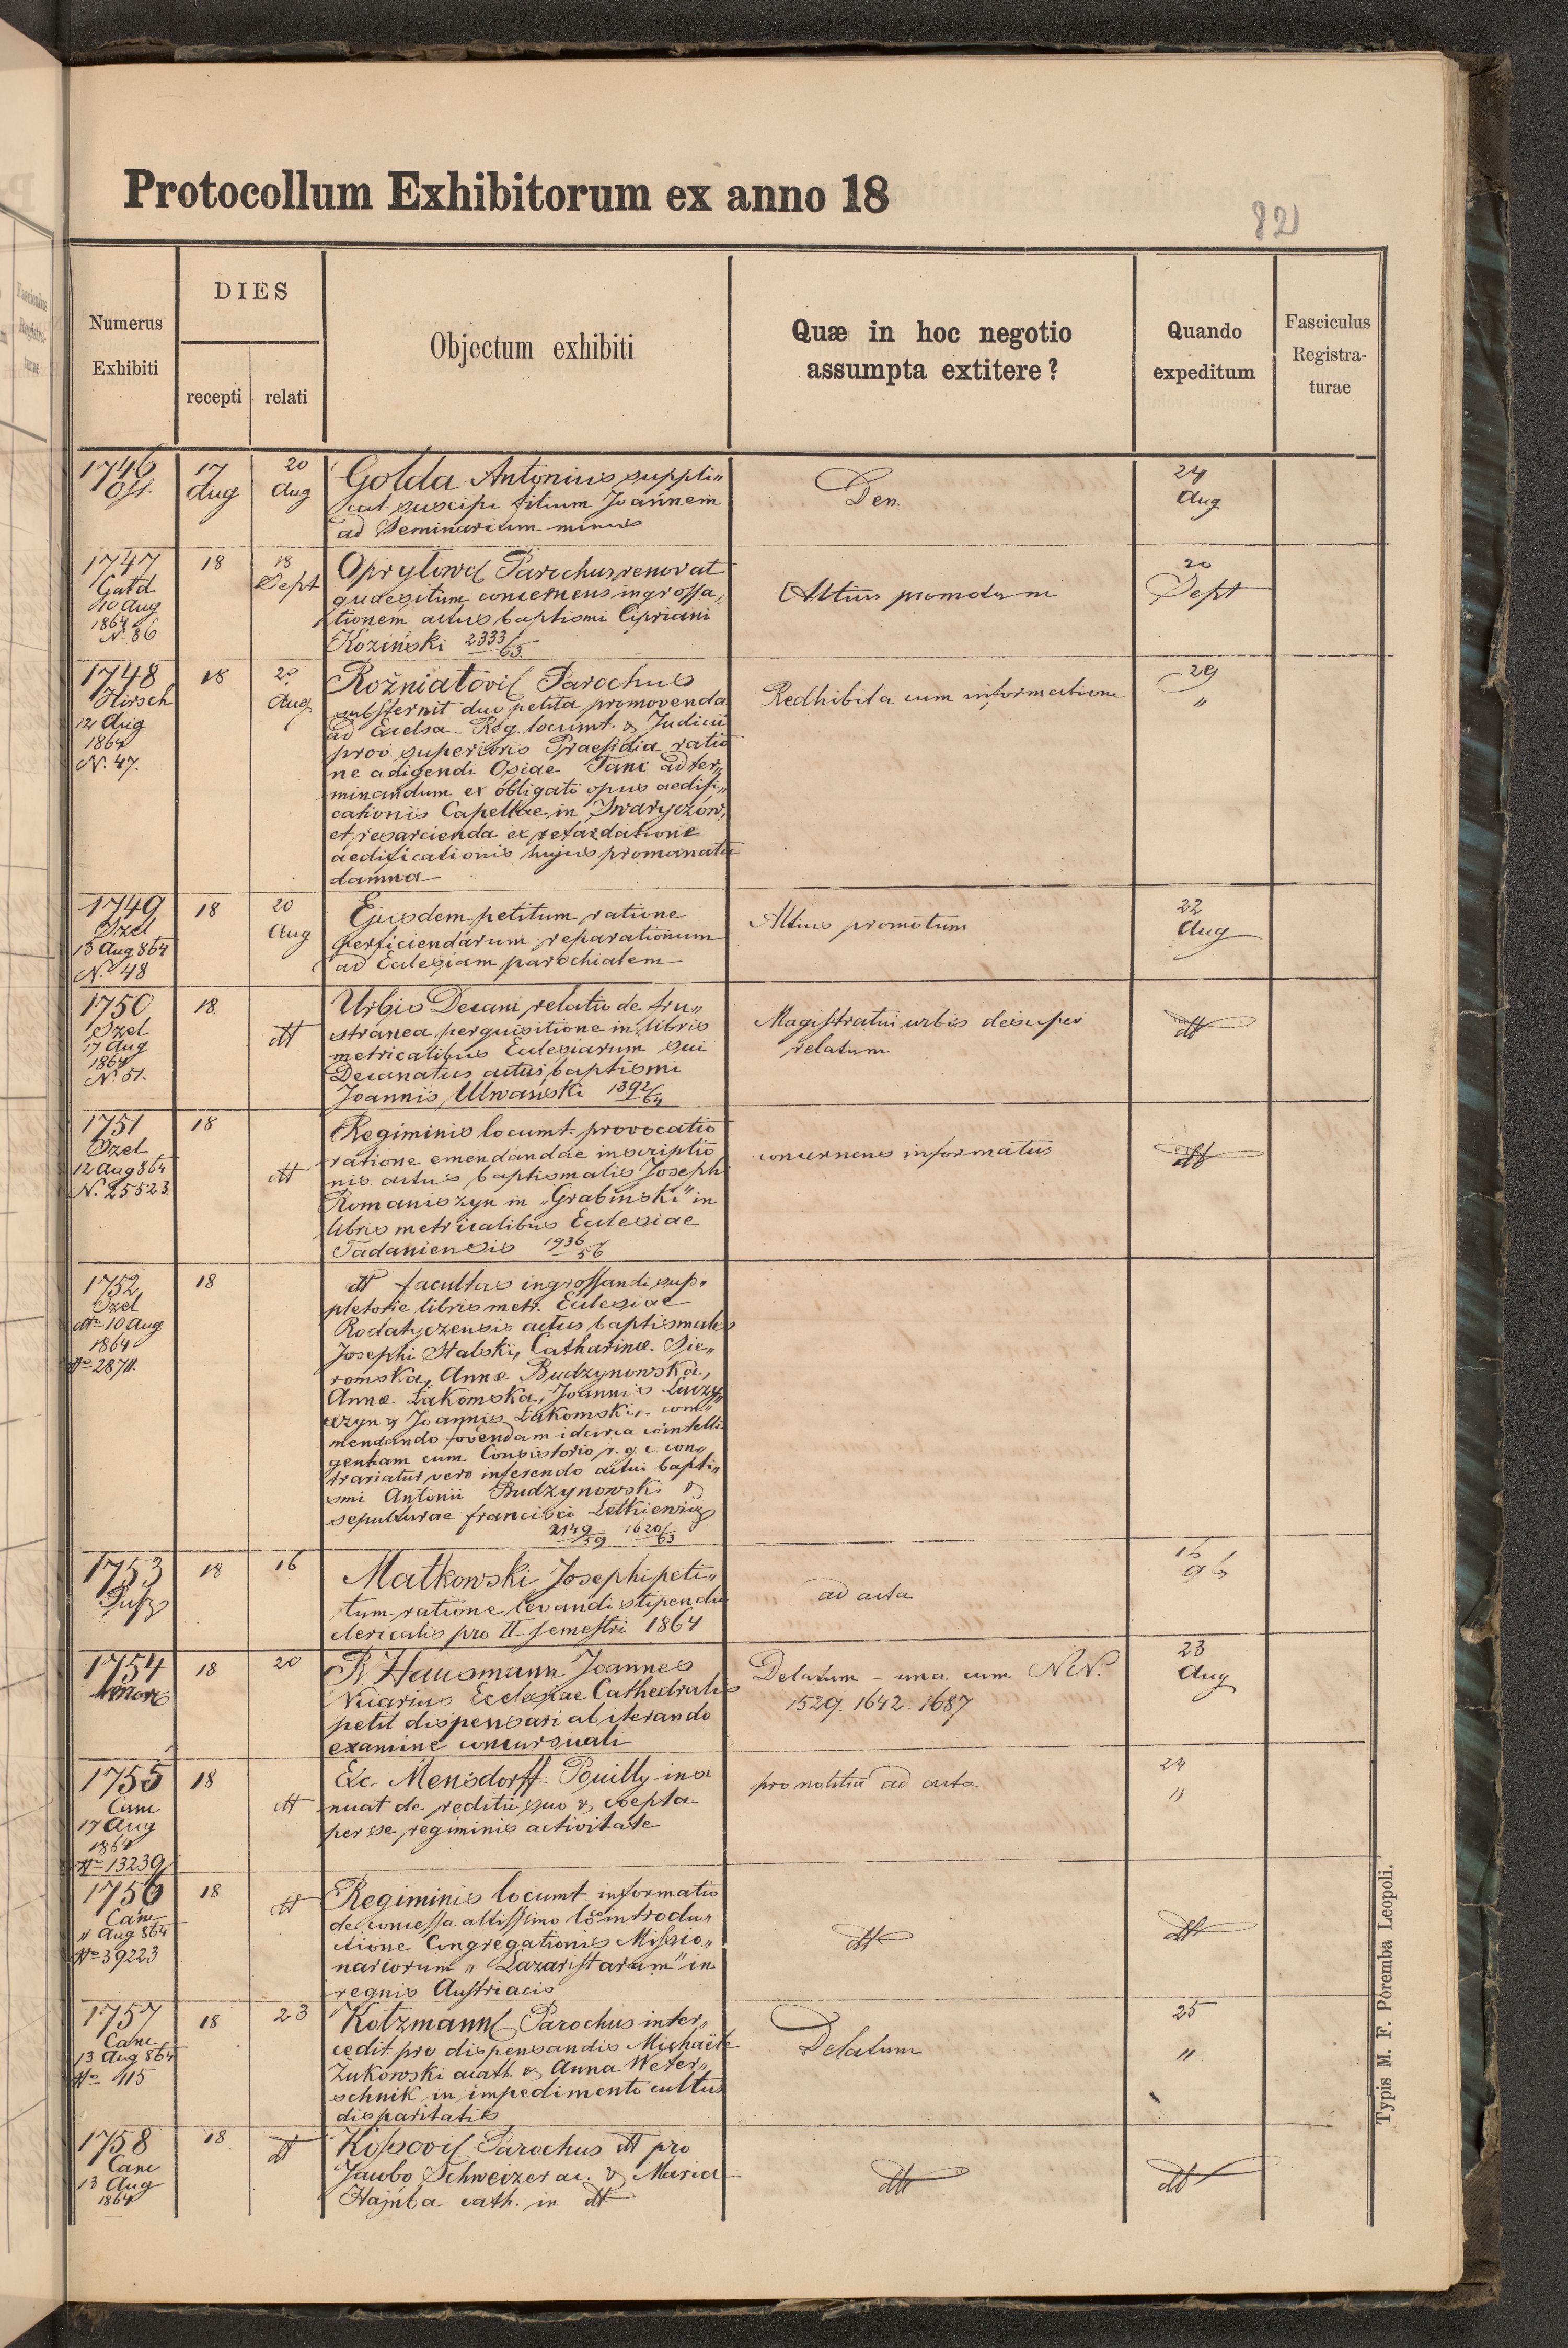 Protocollum Exhibitorum ex anno 18
821
Numerus
Exhibiti
DIES
recepti
relati
Objectum exhibiti
Quæ in hoc negotio
assumpta extitere?
Quando
expeditum
Fasciculus
Registra-
turae
1746
17
Aug
20
Aug
Golda Antonius suppli„
cat suscipi filium Joannem
ad Seminarium minus
Den.
24
Aug
1747
10 Aug
1864
N. 86
18
18
Sept
Parochus renovat
quaesitum concernens ingrossa„
tionem actus baptismi Cipriani
Koziński 2333/63.
Altius promotum
20
Sept
1748
Hirsch
12 Aug
1864
N. 47.
18
20
Aug
Rożniatov Parochus
substernit duo petita promovenda
ad Excelsa Reg. locumt. & Judicii
prov. superioris Praesidia ratio
ne adigendi Osiae Tani ad ter„
minandum ex obligato opus aedifi„
cationis Capellae in Swaryczów,
et resarcienda ex retardatione
aedificationis hujus promanata
damna
Redhibita cum informatione
29
"
1749
Szel
15 Aug 864
N. 48
18
20
Aug
Ejusdem petitum ratione
perficiendarum reparationum
ad Eclesiam parochialem
Altius promotum
22
Aug
1750
Szel
17 Aug
1864
N. 51.
18
dtt
Urbis Decani relatio de fru„
stranea perquisitione in libris
metricalibus Eclesiarum sui
Decanatus actus baptismi
Joannis Ulwański 1392/64
Magistratui urbis desuper
relatum
dtt
1751
Szel
12 Aug 864
N. 25523
18
dtt
Regiminis locumt. provocatio
ratione emendandae inscriptio
nis actus baptismalis Joseph
Romaniszyn in „Grabiński" in
libris metricalibus Eclesiae
Tadaniensis 1936/56
concernens informatus
dtt
1752
Szel
dtto 10 Aug
1864
No 28711.
18
dtt facultas ingrossandi sup„
pletorie libris metr. Eclesiae
Rodatyczensis actus baptismales
Josephi Stalski, Catharinæ Sie„
romska, Annæ Budzynowska,
Annæ Łakomska, Joannis Luczy„
czyn & Joannis Łakomski, com„
mendando fovendam idcirca cointelli
gentiam cum Consistorio r. g. c. con„
trariatur vero inserendo actui bapti„
smi Antonii Budzynowski &
sepulturae francisci Letkiewicz
2149/59 1620/63
1753
18
16
Matkowski Josephi peti„
tum ratione levandi stipendii
clericalis pro II semestri 1864
ad acta
1754
18
20
R Hausmann Joannes
Vicarius Ecclesiae Cathedralis
petit dispensari ab iterando
examine concursuali
Delatum - una cum NN.
1529. 1642. 1687
23
Aug
1755
Canc
17 Aug
1864
No 13239
18
dtt
Exc. Mensdorff-Pouilly insi
nuat de reditu suo & coepta
per se regiminis activitate
pro notitia ad acta
24
"
1756
Canc
11 Aug 864
No 39223
18
dtt
Regiminis locumt. informatio
de concessa altissimo loco introdu„
ctione Congregationis Missio„
nariorum „Lazaristarum" in
regnis Austriacis
dtt
dtt
1757
Canc
13 Aug 864
No 415
18
23
Kotzmann Parochus inter„
cedit pro dispensandis Michaële
Żukowski acath. & Anna Weter„
schnik in impedimento cultus
disparitatis
Delatum
25
"
1758
Canc
13 Aug
1864
18
dtt
Parochus dtt pro
Jacobo Schweizer ac. & Maria
Hajnba cath. in dtt
dtt
dtt
Typis M. F. Poremba Leopoli.